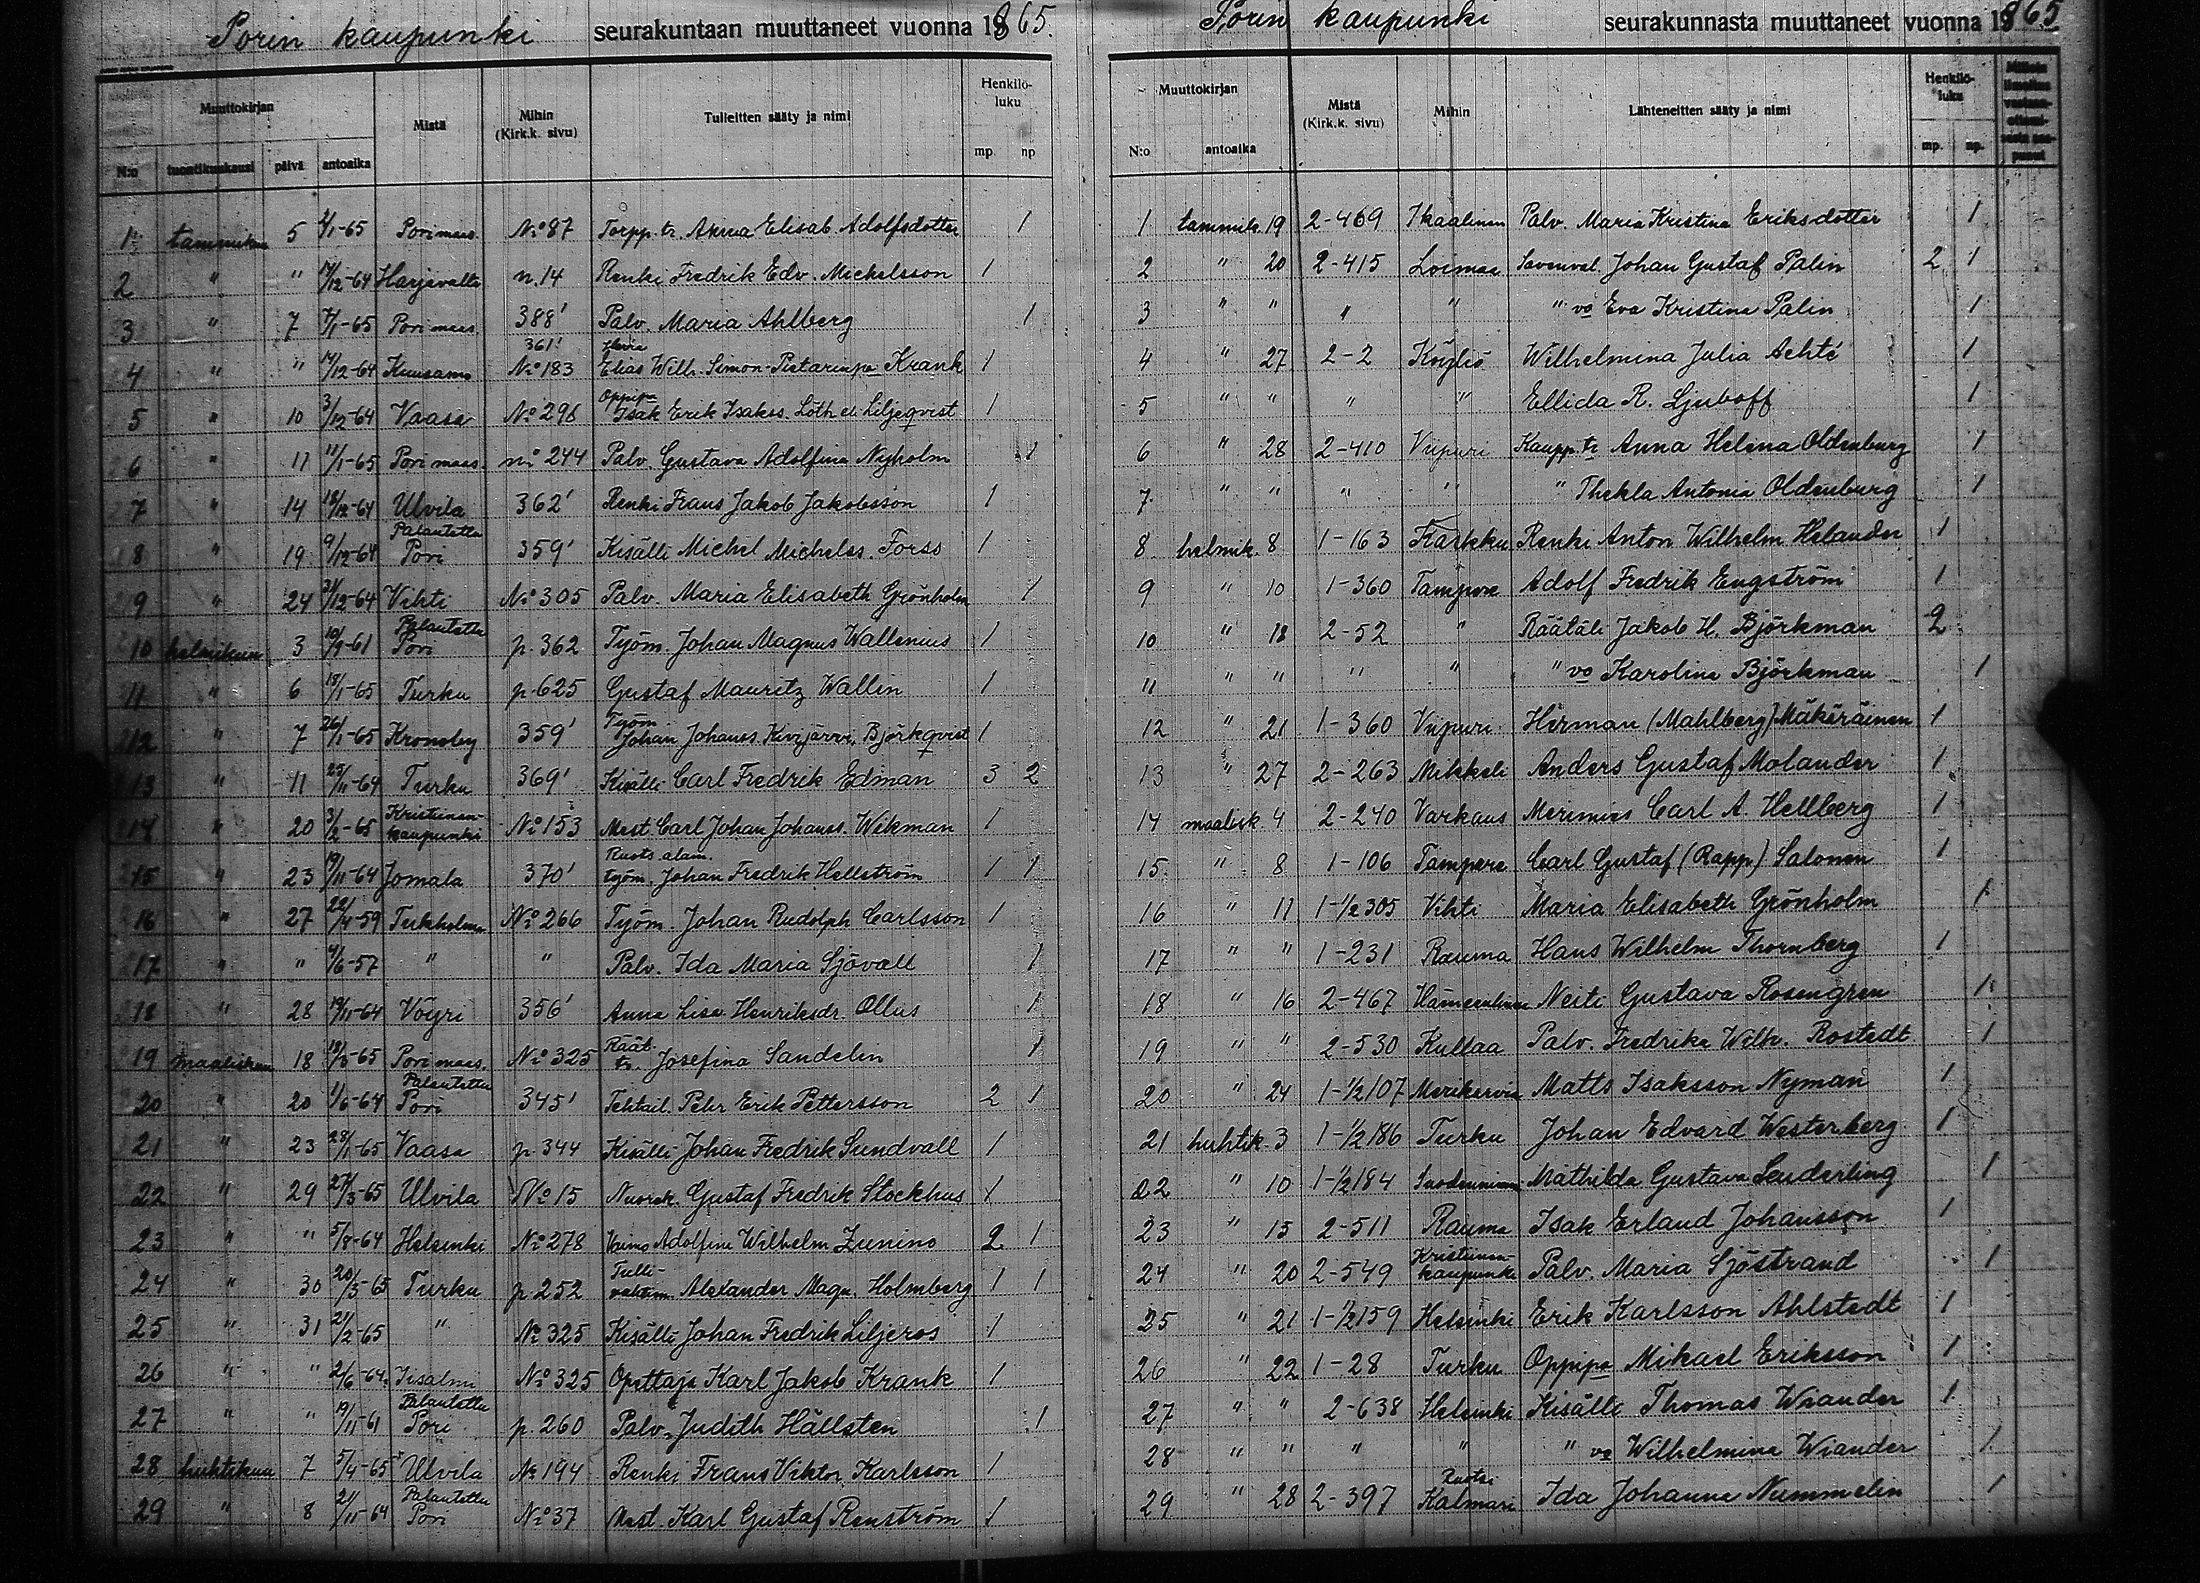 Porin kaupunki seurakuntaan muuttaneet vuonna 1865.
Muuttokirjan Mistä Mihin (Kirk.k. sivu) Tulleitten sääty ja nimi Henkilöluku
N:o tuontikuukausi päivä antoaika mp. np
1 tammikuu 5 2/1-65 Pori maas. No 87 Torpp. tr. Anna Elisab. Adolfsdotter 1
2 " " 17/12-64 Harjavalta n. 14 Renki Fredrik Edv. Michelsson 1
3 " 7 7/1-65 Pori maas. 388' Palv. Maria Ahlberg 1
4 " " 14/12-64 Kuusamo 361' No 183 Herra Elias Wilh. Simon-Pistarinpa Krank 1
5 " 10 3/12-64 Vaasa No 296 Oppipa Isak Erik Isakss. Löth el. Liljeqvist 1
6 " 11 11/1-65 Pori maas. no 244 Palv. Gustava Adolfina Nyholm 1
7 " 14 18/12-64 Ulvila 362' Renki Frans Jakob Jakobsson 1
8 " 19 9/12-64 Palautettu Pori 359' Kisälli Michel Michelss. Forss 1
9 " 24 31/12-64 Vihti No 305 Palv. Maria Elisabeth Grönholm 1
10 helmikuu 3 10/9-61 Palautettu Pori p. 362 Työm. Johan Magnus Wallenius 1
11 " 6 18/1-65 Turku p. 625 Gustaf Mauritz Wallin 1
12 " 7 26/1-65 Kronoby 359' Työm Johan Johanss. Kivijärvi, Björkqvist 1
13 " 11 25/11-64 Turku 369' Kisälli Carl Fredrik Edman 3 2
14 " 20 3/2-65 Kristiinankaupunki No 153 Mest. Carl Johan Johanss. Wikman 1
15 " 23 19/11-64 Jomala 370' Ruots. alam. työm. Johan Fredrik Hellström 1 1
16 " 27 22/4-59 Tukholma No 266 Työm. Johan Rudolph Carlsson 1
17 " " 4/6-57 " " Palv. Ida Maria Sjövall 1
18 " 28 19/11-64 Vöyri 356' Anna Lisa Henriksdr. Ollus 1
19 maaliskuu 18 18/3-65 Pori maas. No 325 Räät. tr. Josefina Sandelin 1
20 " 20 1/6-64 Palautettu Pori 345' Tehtail. Pehr Erik Pettersson 2 1
21 " 23 28/1-65 Vaasa p. 344 Kisälli Johan Fredrik Sundvall 1
22 " 29 27/3-65 Ulvila No 15 Nuorek. Gustaf Fredrik Stockhus 1
23 " " 5/8-64 Helsinki No 278 Vaimo Adolfine Wilhelm. Zunino 2 1
24 " 30 20/3-65 Turku p. 252 Tullivahtim. Alexander Magn. Holmberg 1 1
25 " 31 21/2-65 " No 325 Kisälli Johan Fredrik Liljeros 1
26 " " 2/6-64 Iisalmi No 325 Opettaja Karl Jakob Krank 1
27 " " 19/11-61 Palautettu Pori p. 260 Palv. Judith Hällsten 1
28 huhtikuu 7 5/4-65 Ulvila No 194 Renki Frans Viktor Karlsson 1
29 " 8 21/11-64 Palautettu Pori No 37 Mest. Karl Gustaf Renström 1
Porin kaupunki seurakunnasta muuttaneet vuonna 1865
Muuttokirjan Mistä (Kirk.k. sivu) Mihin Lähteneitten sääty ja nimi Henkilöluku
N:o antoaika mp. np.
1 tammik. 19 2-469 Ikaalinen Palv. Maria Kristina Eriksdotter 1
2 " 20 2-415 Loimaa Savenval. Johan Gustaf Palin 2 1
3 " " " " " vo Eva Kristina Palin 1
4 " 27 2-2 Köyliö Wilhelmina Julia Achté 1
5 " " " " Ellida R. Ljuboff 1
6 " 28 2-410 Viipuri Kaupp. tr Anna Helena Oldenburg 1
7 " " " " " Thekla Antonia Oldenburg 1
8 helmik. 8 1-163 Karkku Renki Anton Wilhelm Helander 1
9 " 10 1-360 Tampere Adolf Fredrik Engström 1
10 " 18 2-52 " Räätäli Jakob H. Björkman 2
11 " " " " " vo Karolina Björkman 1
12 " 21 1-360 Viipuri Herman (Mahlberg) Mäkäräinen 1
13 " 27 2-263 Mikkeli Anders Gustaf Molander 1
14 maalisk 4 2-240 Varkaus Merimies Carl A. Hellberg 1
15 " 8 1-106 Tampere Carl Gustaf (Rapp) Salonen 1
16 " 11 1-1/2 305 Vihti Maria Elisabeth Grönholm 1
17 " " 1-231 Rauma Hans Wilhelm Thornberg 1
18 " 16 2-467 Hämeenlinna Neiti Gustava Rosengren 1
19 " " 2-530 Kullaa Palv. Fredrika Wilh. Rostedt 1
20 " 24 1-1/2 107 Merikarvia Matts Isaksson Nyman 1
21 huhtik. 3 1-1/2 186 Turku Johan Edvard Westerberg 1
22 " 10 1-1/2 184 Suodenniemi Mathilda Gustava Senderling 1
23 " 15 2-511 Rauma Isak Erland Johansson 1
24 " 20 2-549 Kristiinankaupunki Palv. Maria Sjöstrand 1
25 " 21 1-1/2 159 Helsinki Erik Karlsson Ahlstedt 1
26 " 22 1-28 Turku Oppipa Mikael Eriksson 1
27 " " 2-638 Helsinki Kisälli Thomas Wiander 1
28 " " " " " vo Wilhelmina Wiander 1
29 " 28 2-397 Ruotsi Kalmari Ida Johanna Nummelin 1